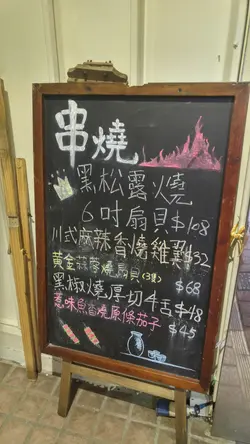 串燒
黑松露燒
6吋扇貝$108
川式麻辣香燒雞翼$32
黃金蒜蓉燒扇貝(3隻)
$68
黑椒燒厚切牛舌$48
惹味魚香燒原條茄子
$45